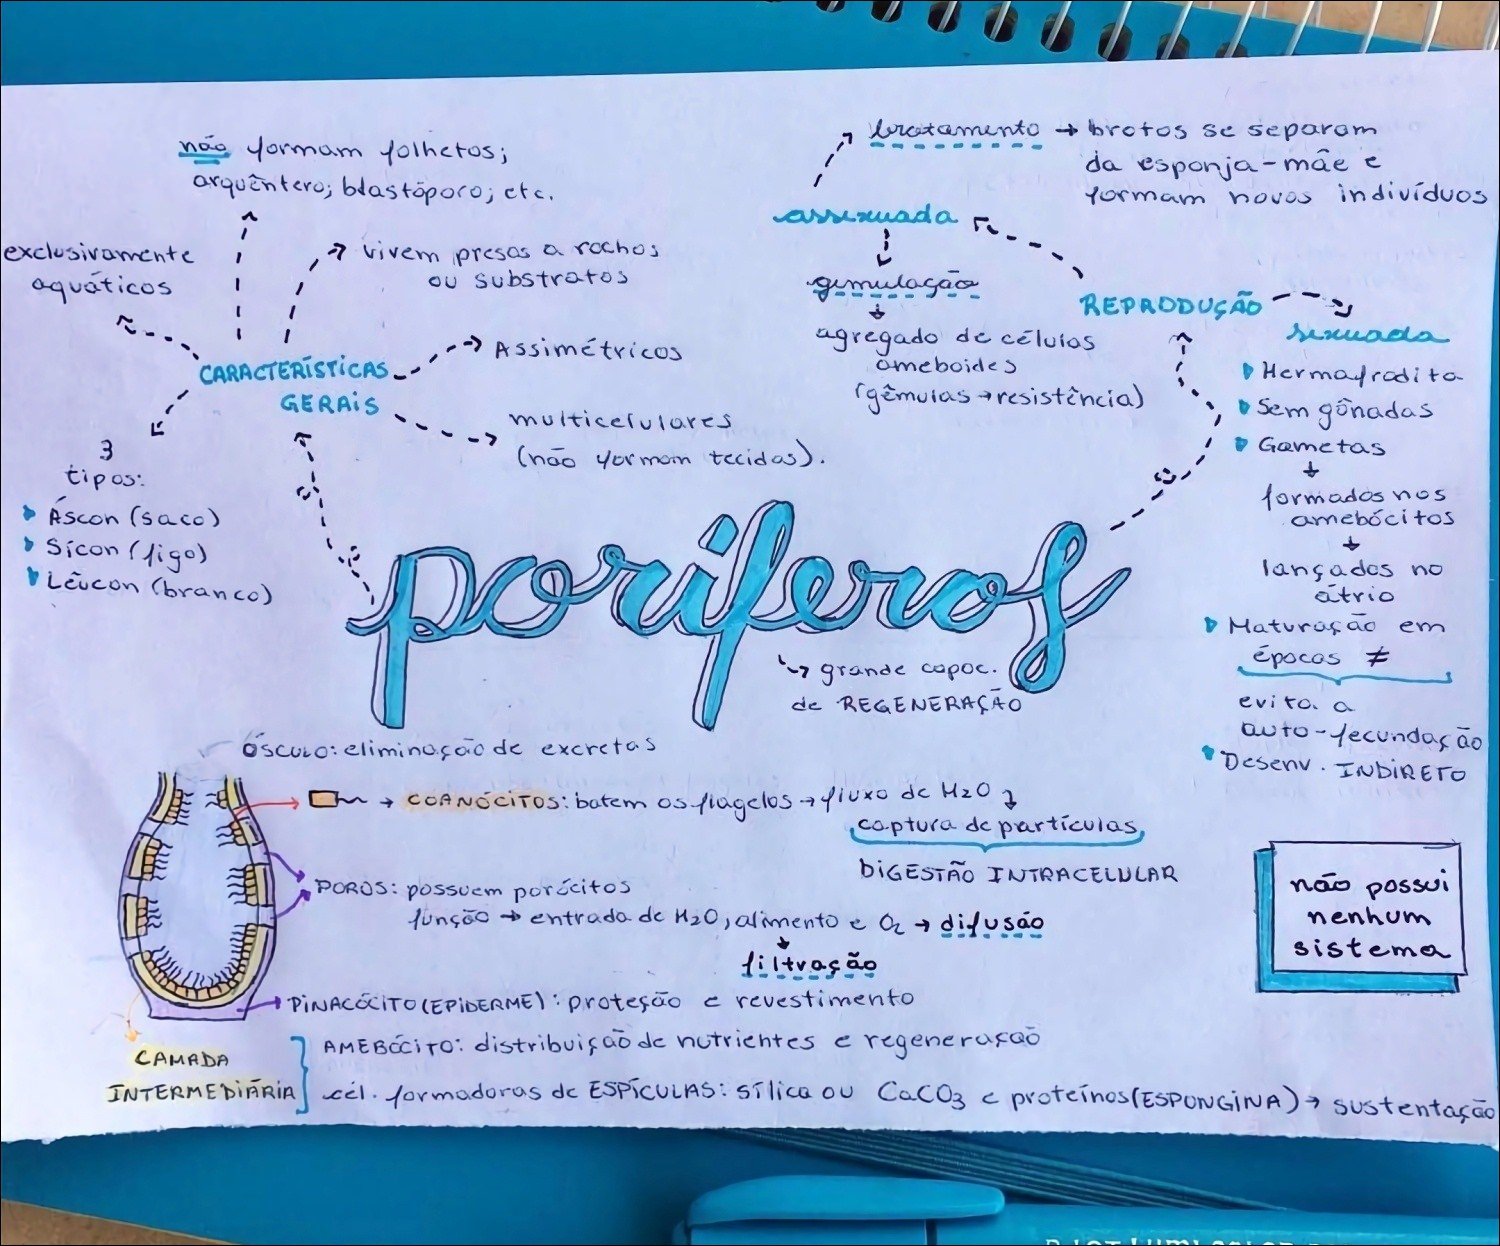 não formam folhetos;
arquêntero; blastóporo; etc.
exclusivamente
aquáticos
vivem presos a rochas
ou substratos
CARACTERÍSTICAS
GERAIS
Assimétricos
multicelulares
(não formam tecidos).
3
tipos:
Áscon (saco)
Sícon (figo)
Lêucon (branco)
brotamento → brotos se separam
da esponja-mãe e
formam novos indivíduos
assexuada
gemulação
agregado de células
ameboides
(gêmulas → resistência)
REPRODUÇÃO
sexuada
Hermafrodita
Sem gônadas
Gametas
formados nos
amebócitos
lançados no
átrio
Maturação em
épocas ≠
evita a
auto-fecundação
Desenv. INDIRETO
poríferos
grande capac.
de REGENERAÇÃO
ÓSCULO: eliminação de excretas
→ COANÓCITOS: batem os flagelos → fluxo de H2O
captura de partículas
DIGESTÃO INTRACELULAR
POROS: possuem porócitos
função → entrada de H2O, alimento e O2 → difusão
filtração
PINACÓCITO (EPIDERME): proteção e revestimento
CAMADA
INTERMEDIÁRIA
AMEBÓCITO: distribuição de nutrientes e regeneração
cél. formadoras de ESPÍCULAS: sílica ou CaCO3 e proteínas (ESPONGINA) → sustentação
não possui
nenhum
sistema